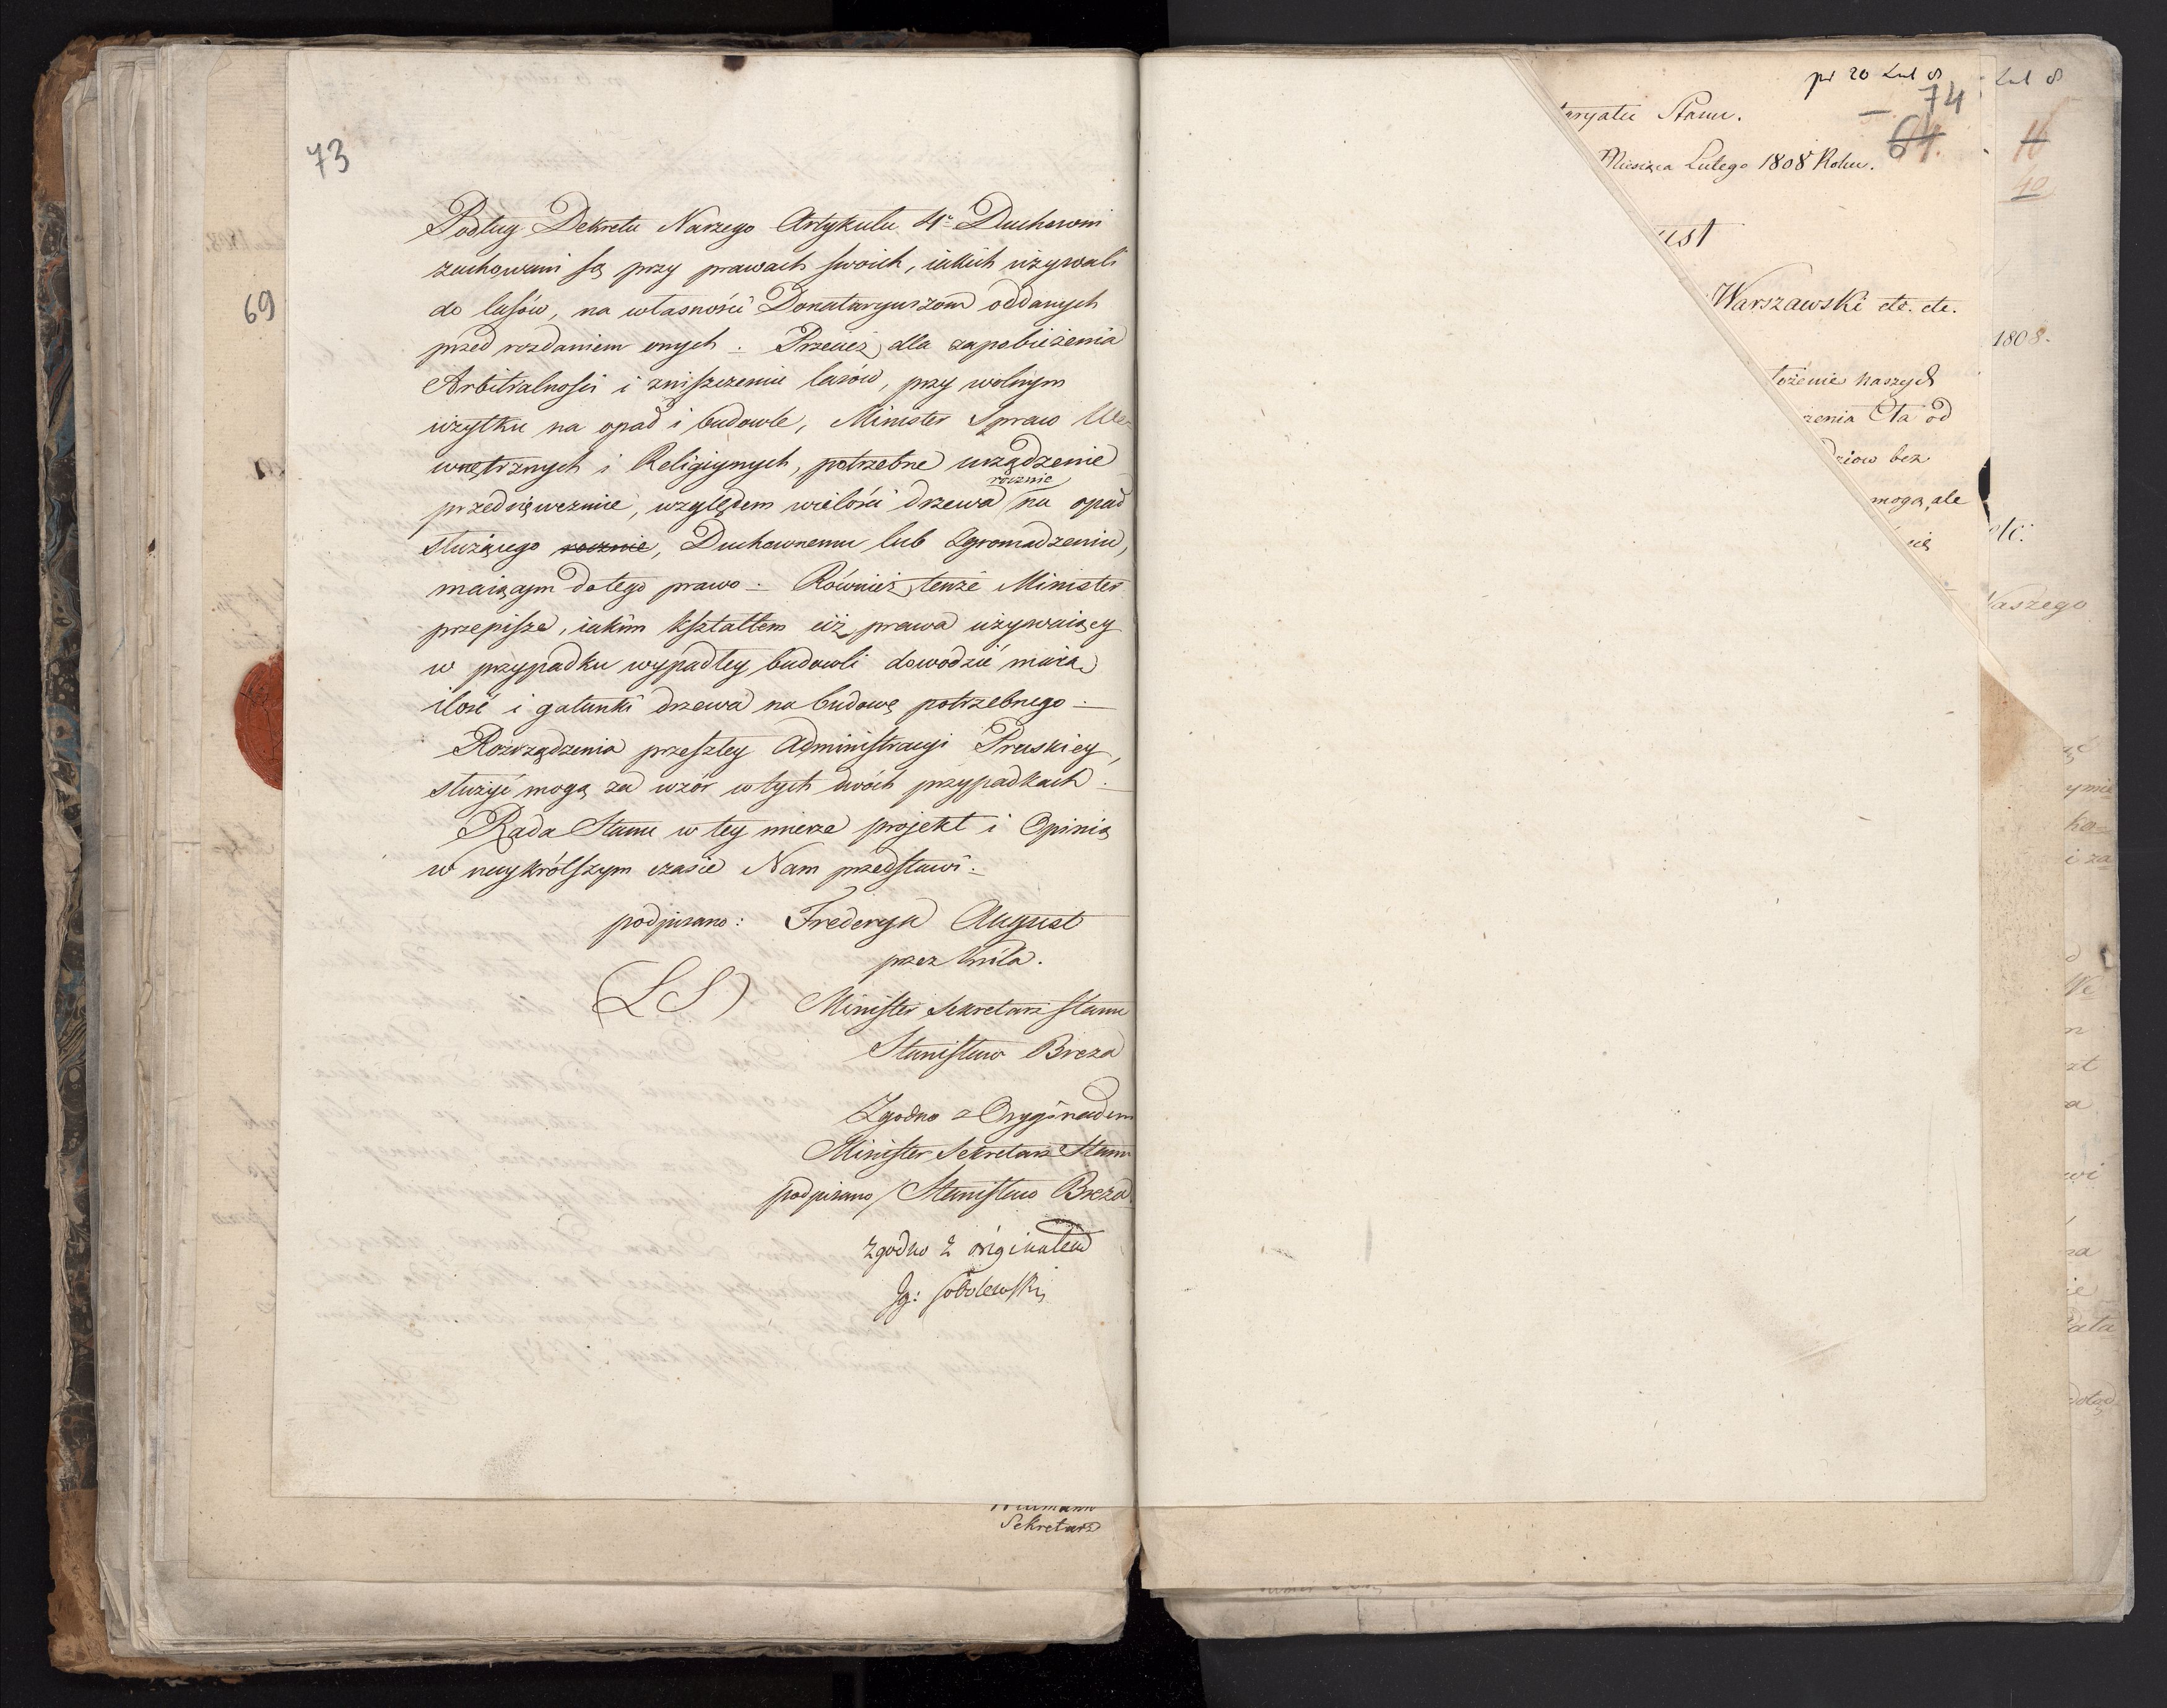 73
Podług Dekretu Naszego Artykułu 4º Duchowni
zachowani są przy prawach swoich, iakich używali
do lasów, na własność Donataryuszom oddanych
przed rozdaniem onych. Przecież dla zapobieżenia
Arbitralności i zniszczenia lasów, przy wolnym
użytku na opał i budowle, Minister Spraw We-
wnętrznych i Religiynych, potrzebne urządzenie
przedsięweźmie, względem wielości drzewa rocznie na opał
służącego rocznie, Duchownemu lub Zgromadzeniu,
maiącym do tego prawo. Również tenże Minister
przepisze, iakim kształtem ciż prawa używaiący
w przypadku wypadłey budowli dowodzić maią
ilość i gatunki drzewa na budowę potrzebnego.
Rozrządzenia przeszłey Administracyi Pruskiey,
służyć mogą za wzór w tych dwóch przypadkach.
Rada Stanu w tey mierze projekt i Opinią
w naykrótszym czasie Nam przedstawi.
podpisano: Frederyk August
przez Króla.
(LS) Minister Sekretarz Stanu
Stanisław Breza
Zgodno z Oryginałem
Minister Sekretarz Stanu
podpisano / Stanisław Breza
Zgodno z originałem
Jg: Sobolewski
69
Sekretarz
pr 20 Lut 8
74
64.
Stanu.
Miesiąca Lutego 1808 Roku.
ust
Warszawski etc. etc.
łożenie naszych
zenia Cła od
bez
mogą, ale
Lut 8
16
40
1808.
etc:
Naszego
i za